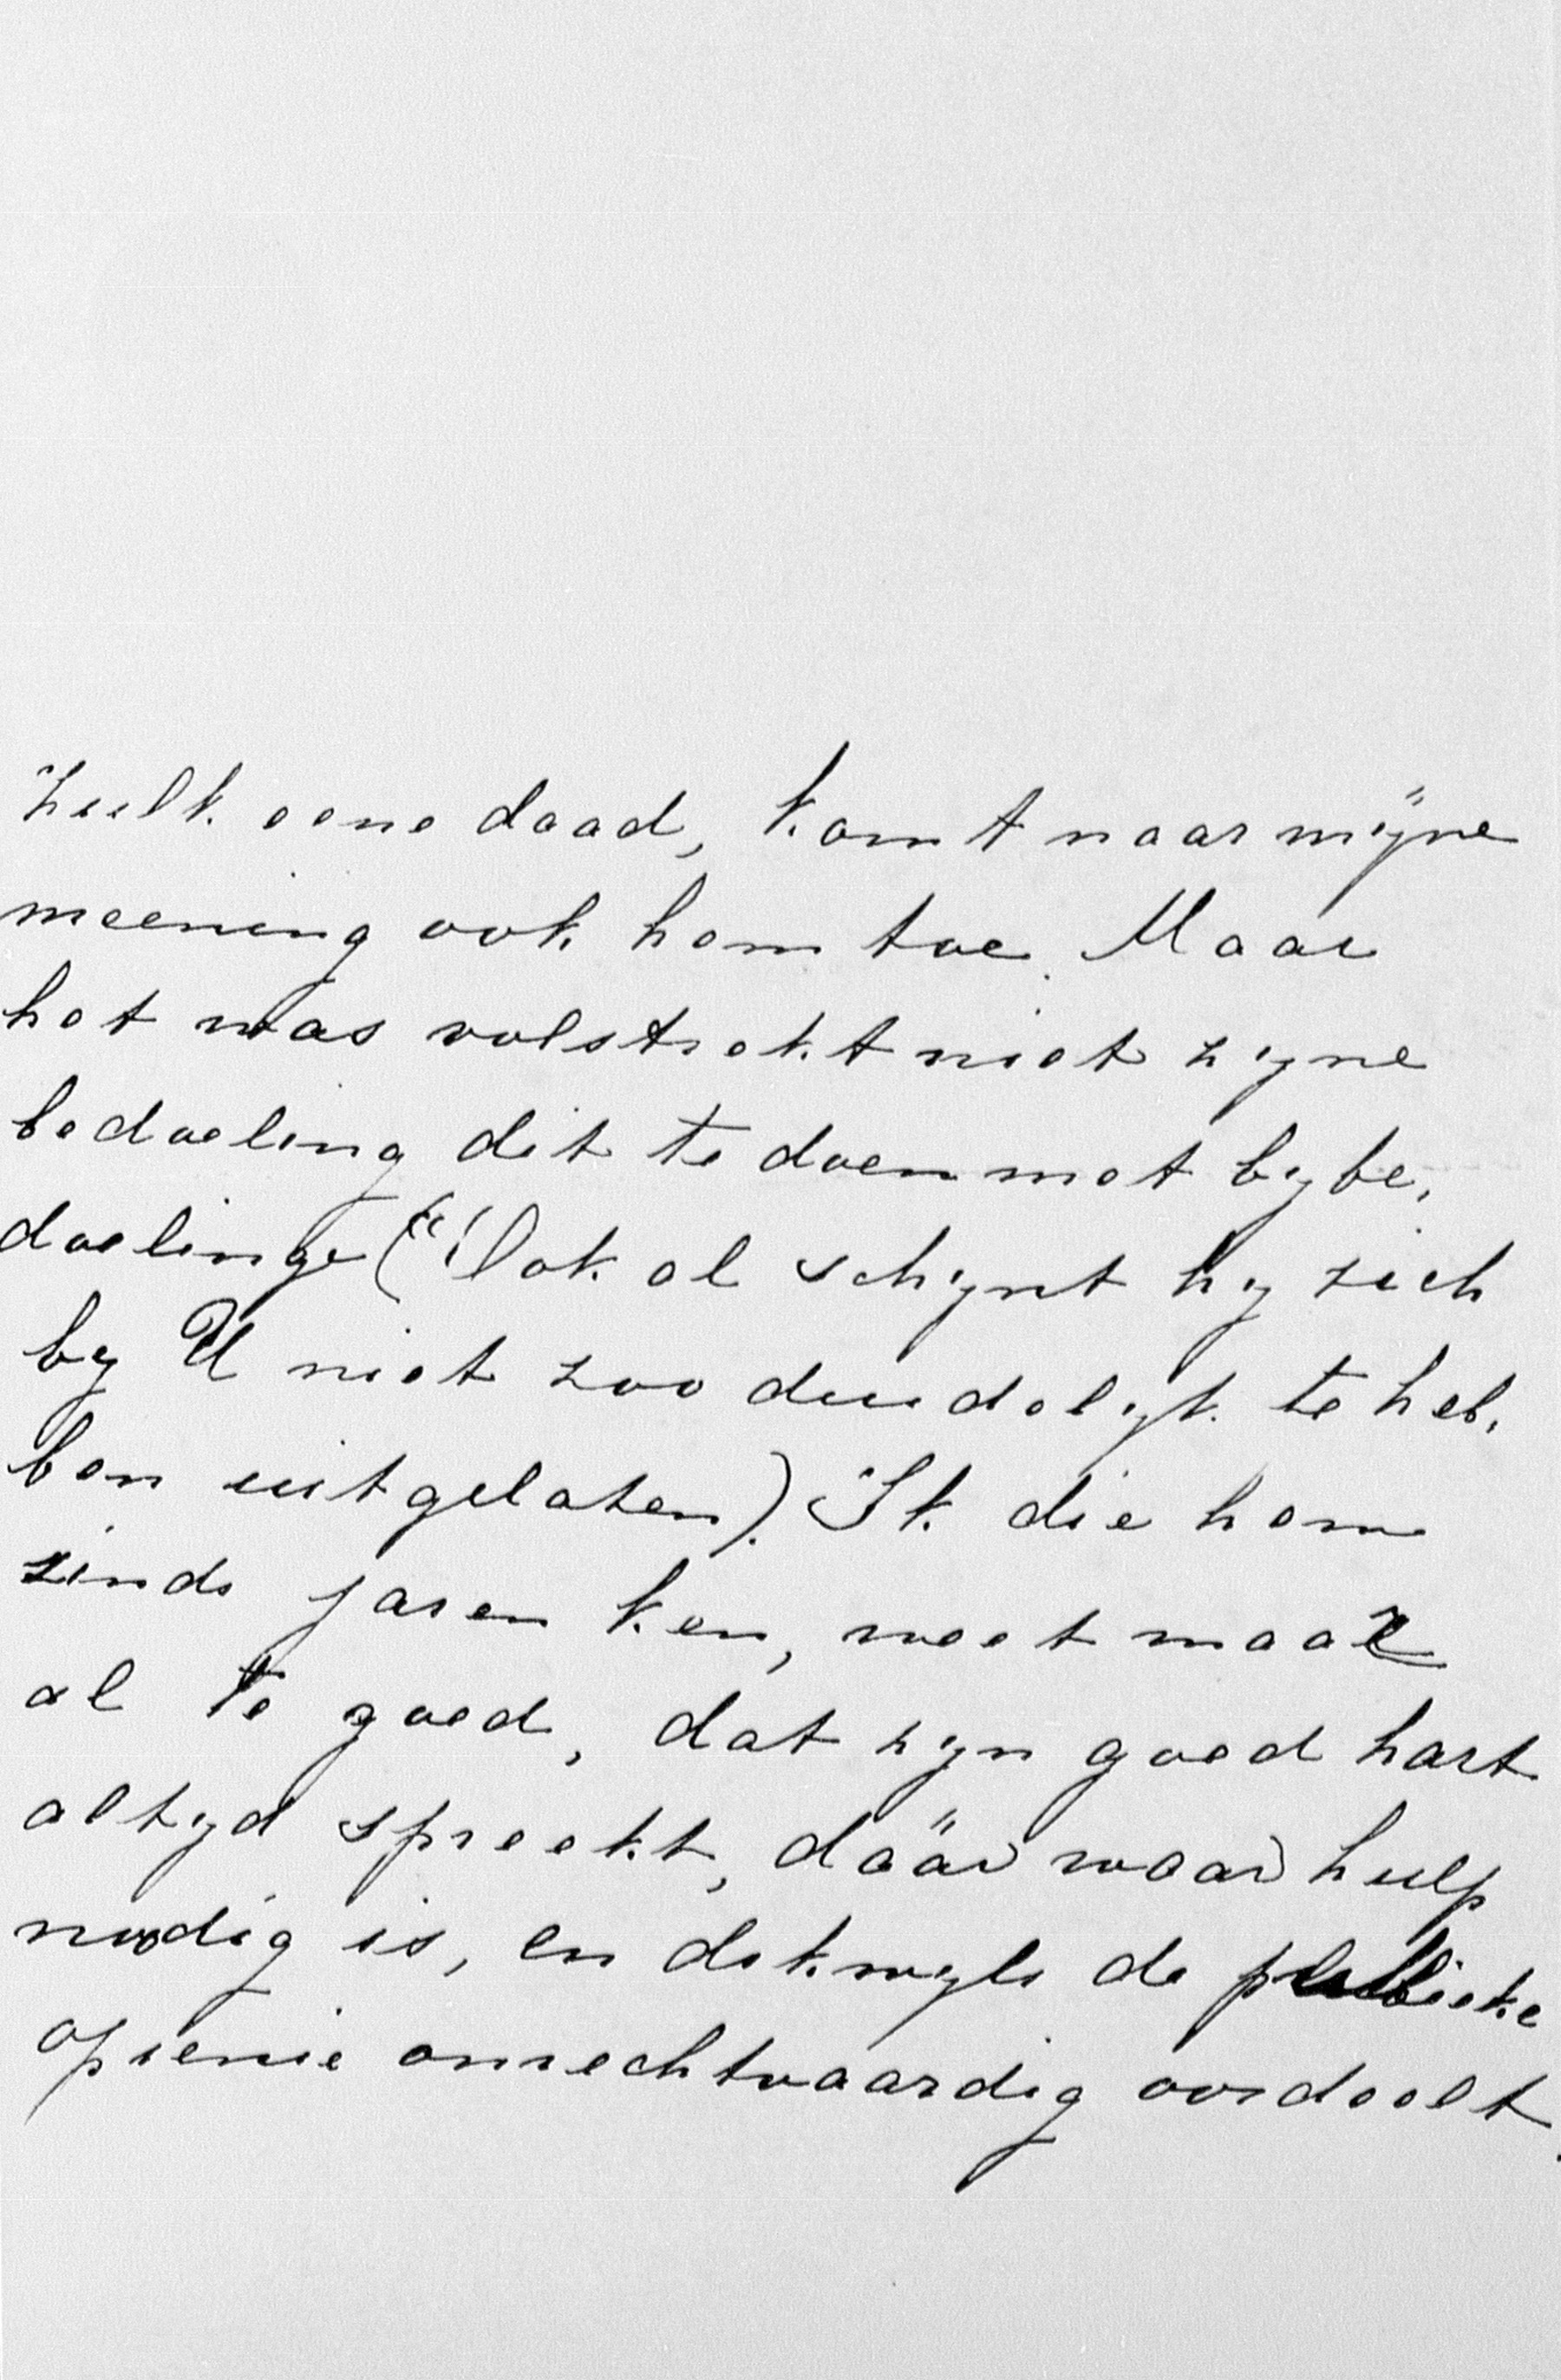 zulk eene daad, komt naar mijne
meening ook hem toe. Maar
het was volstrekt niet zyne
bedoeling dit te doen met bybe-
doelinge ("Ook al schynt hy zich
by U niet zoo duidelyk te heb-
ben uitgelaten). Ik die hem
zinds jaren ken, weet maar
al te goed, dat zyn goed hart
altyd spreekt, däär waar hulp
noodig is, en dikwyls de publieke
opienie onrechtvaardig oordeelt.